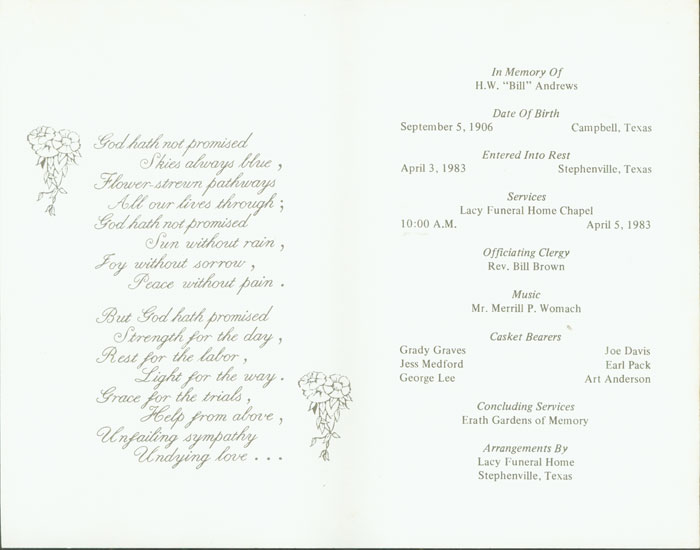 God hath not promised
Skies always blue,
Flower-strewn pathways
All our lives through;
God hath not promised
Sun without rain,
Joy without sorrow,
Peace without pain.
But God hath promised
Strength for the day,
Rest for the labor,
Light for the way.
Grace for the trials,
Help from above,
Unfailing sympathy
Undying love...
In Memory Of
H.W. "Bill" Andrews
Date Of Birth
September 5, 1906 Campbell, Texas
Entered Into Rest
April 3, 1983 Stephenville, Texas
Services
Lacy Funeral Home Chapel
10:00 A.M. April 5, 1983
Officiating Clergy
Rev. Bill Brown
Music
Mr. Merrill P. Womach
Casket Bearers
Grady Graves Joe Davis
Jess Medford Earl Pack
George Lee Art Anderson
Concluding Services
Erath Gardens of Memory
Arrangements By
Lacy Funeral Home
Stephenville, Texas